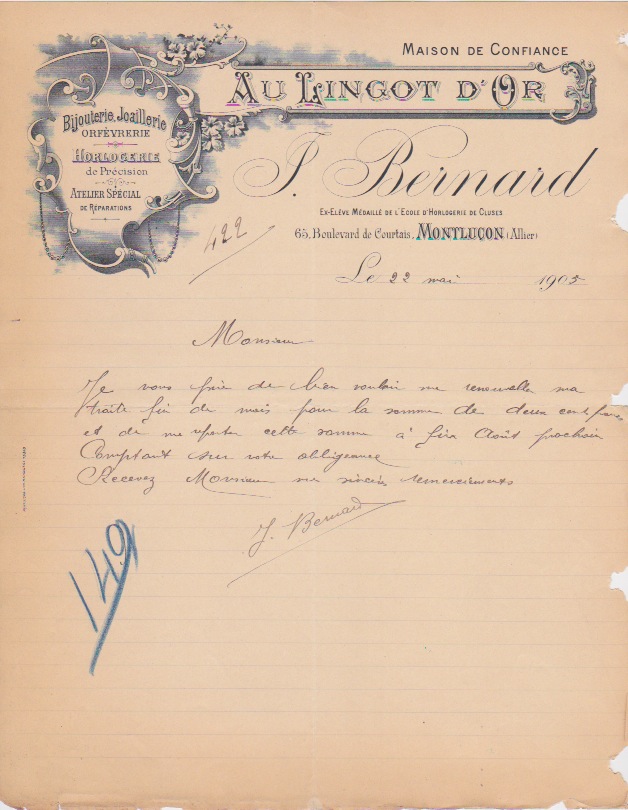 MAISON DE CONFIANCE
AU LINGOT D'OR
Bijouterie, Joaillerie
ORFÈVRERIE
HORLOGERIE
de Précision
ATELIER SPÉCIAL
DE RÉPARATIONS
J. Bernard
EX-ELÈVE MÉDAILLÉ DE L'ECOLE D'HORLOGERIE DE CLUSES
65, Boulevard de Courtais, MONTLUÇON (Allier)
422
Le 22 mai 1905
Monsieur
Je vous prie de bien vouloir me renouveller ma
traite fin de mais pour la somme de deux cent francs
et de me reporter cette somme à fin Août prochain
Comptant sur votre obligeance
Recevez Monsieur me sincère remerciements
J. Bernard
149